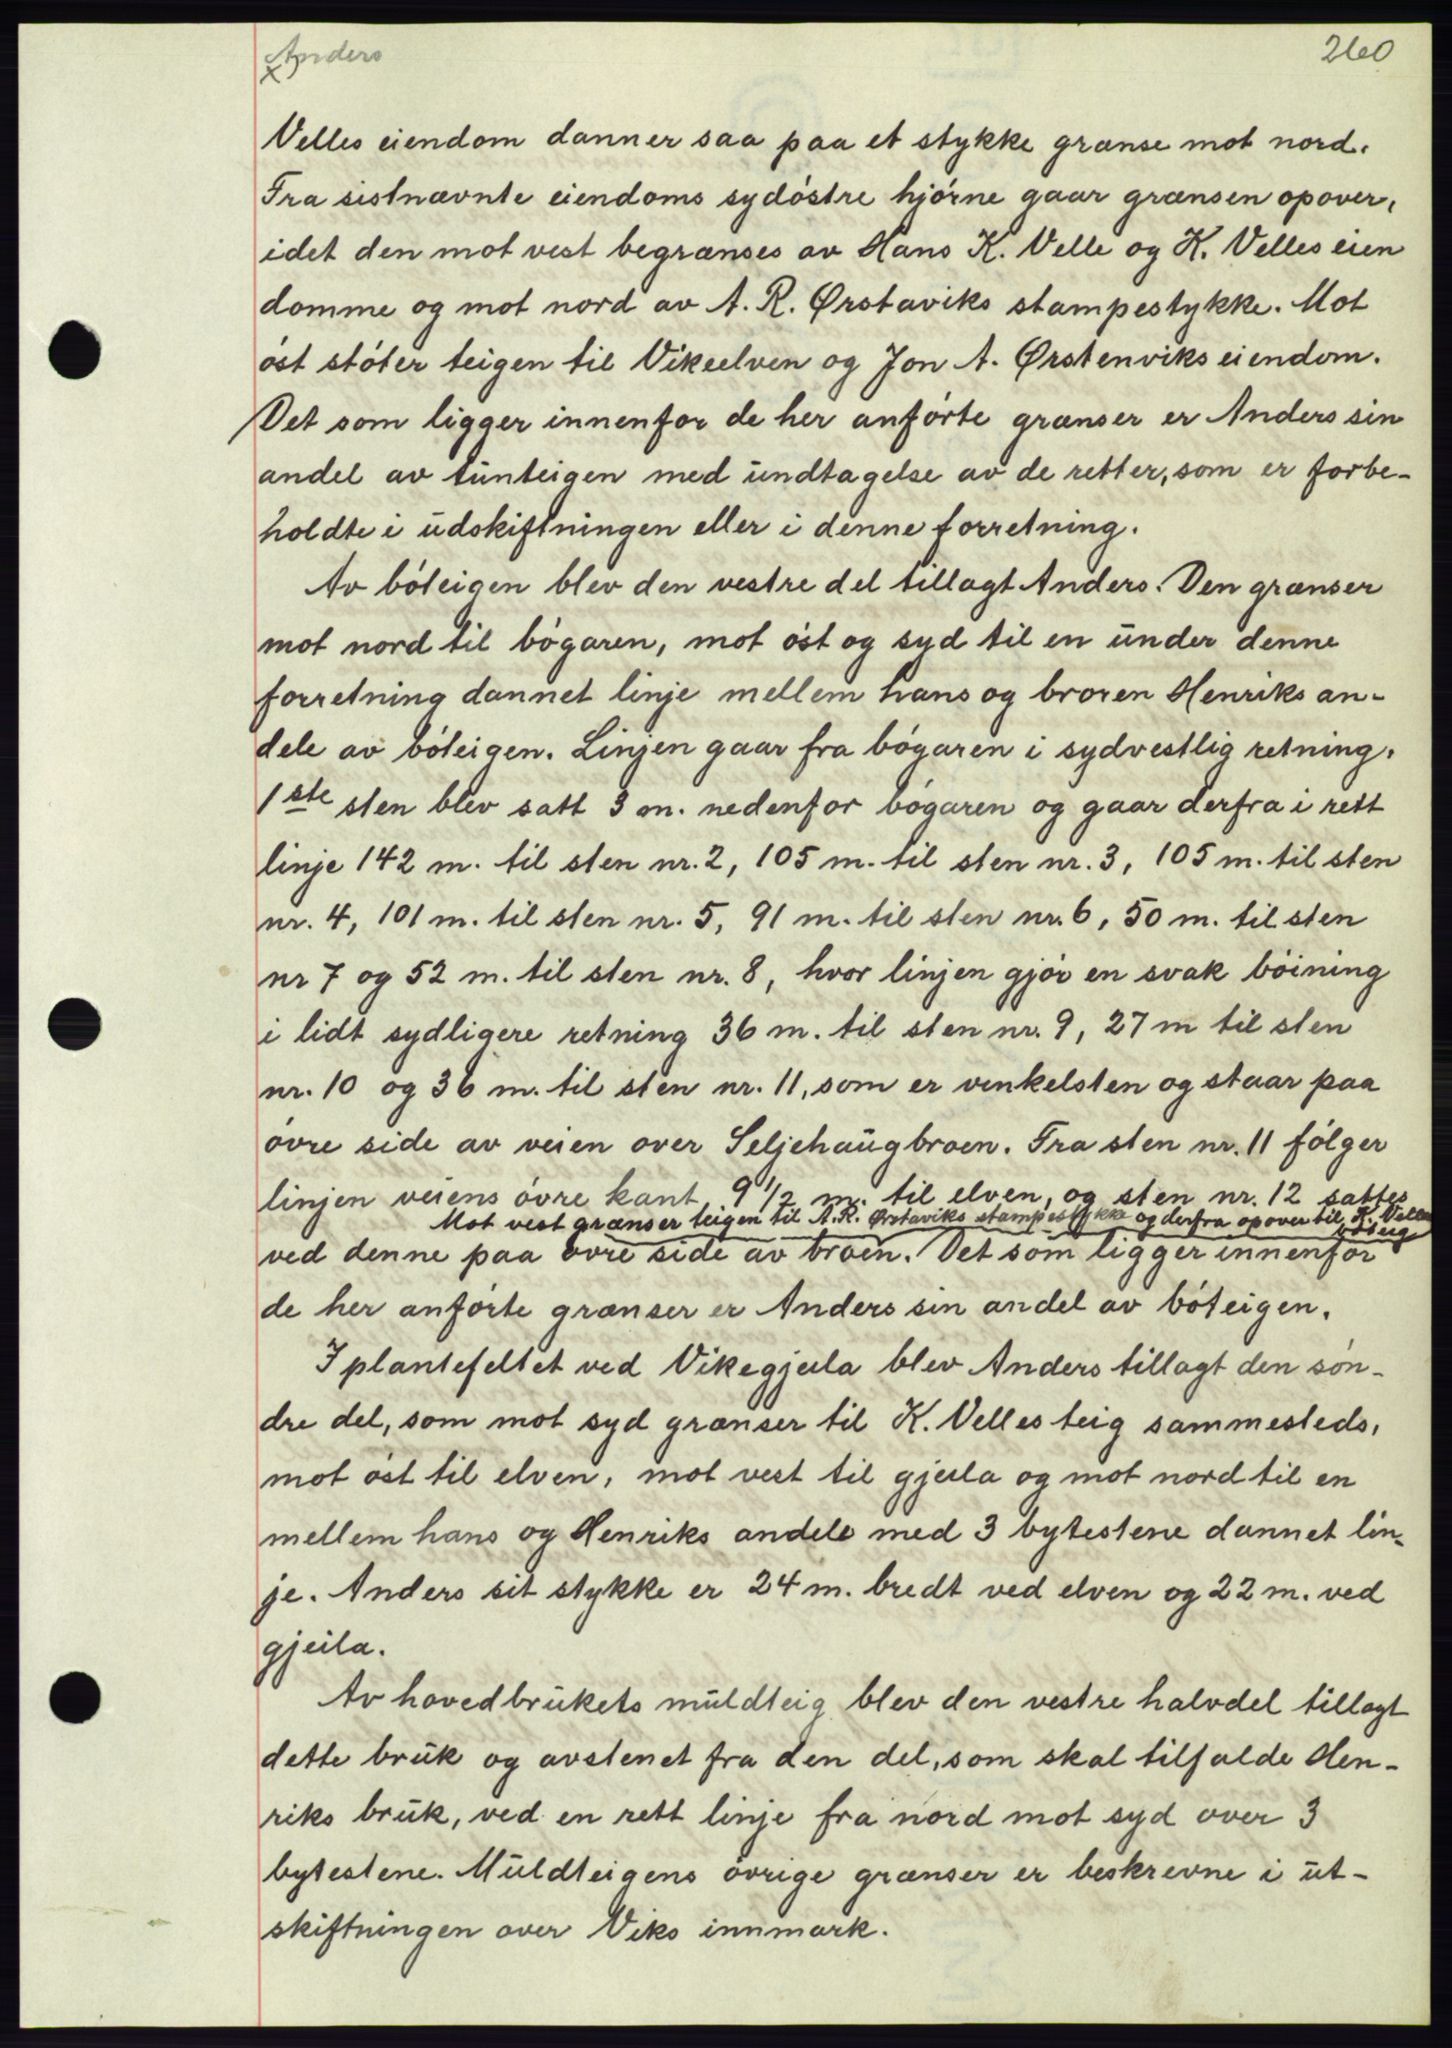 Anders
x)
260
Velles eiendom danner saa paa et stykke grænse mot nord.
Fra sistnævnte eiendoms sydóstre hjórne gaar grænsen opover,
idet den mot vest begrænses av Hans K. Velle og K. Velles eien
domme og mot nord av A. R. Ørstaviks stampestykke. Mot
óst stóter teigen til Vikeelven og Jon A. Ørstenviks eiendom.
Det som ligger innenfor de her anfórte grænser er Anders sin
andel av tunteigen med undtagelse av de retter, som er forbe-
holdte i udskiftningen eller i denne forretning.
Av bóteigen blev den vestre del tillagt Anders. Den grænser
mot nord til bógaren, mot óst og syd til en under denne
forretning dannet linje mellem hans og broren Henriks an-
dele av bóteigen. Linjen gaar fra bógaren i sydvestlig retning.
1ste sten blev satt 3 m. nedenfor bógaren og gaar derfra i rett
linje 142 m. til sten nr. 2, 105 m. til sten nr. 3, 105 m. til sten
nr. 4, 101 m. til sten nr. 5, 91 m. til sten nr. 6, 50 m. til sten
nr 7 og 52 m. til sten nr. 8, hvor linjen gjór en svak bóining
i lidt sydligere retning 36 m. til sten nr. 9, 27 m til sten
nr. 10 og 36 m. til sten nr. 11, som er vinkelsten og staar paa
óvre side av veien over Seljehaugbroen. Fra sten nr. 11 fólger
linjen veiens óvre kant, 9 1/2 m. til elven, og sten nr. 12 sattes
Mot vest grænser teigen til A. R. Ørstaviks stampestykke og derfra opover til K. Velles
bóteig
ved denne paa óvre side av broen. Det som ligger innenfor
de her anfórte grænser er Anders sin andel av bóteigen.
I plantefeltet ved Vikegjeila blev Anders tillagt den són-
dre del, som mot syd grænser til K. Velles teig sammesteds,
mot óst til elven, mot vest til gjeila og mot nord til en
mellem hans og Henriks andele med 3 bytestene dannet lin-
je. Anders sit stykke er 24 m. bredt ved elven og 22 m. ved
gjeila.
Av hovedbrukets muldteig blev den vestre halvdel tillagt
dette bruk og avstenet fra den del, som skal tilfalde Hen-
riks bruk, ved en rett linje fra nord mot syd over 3
bytestene. Muldteigens óvrige grænser er beskrevne i ut-
skiftningen over Viks innmark.